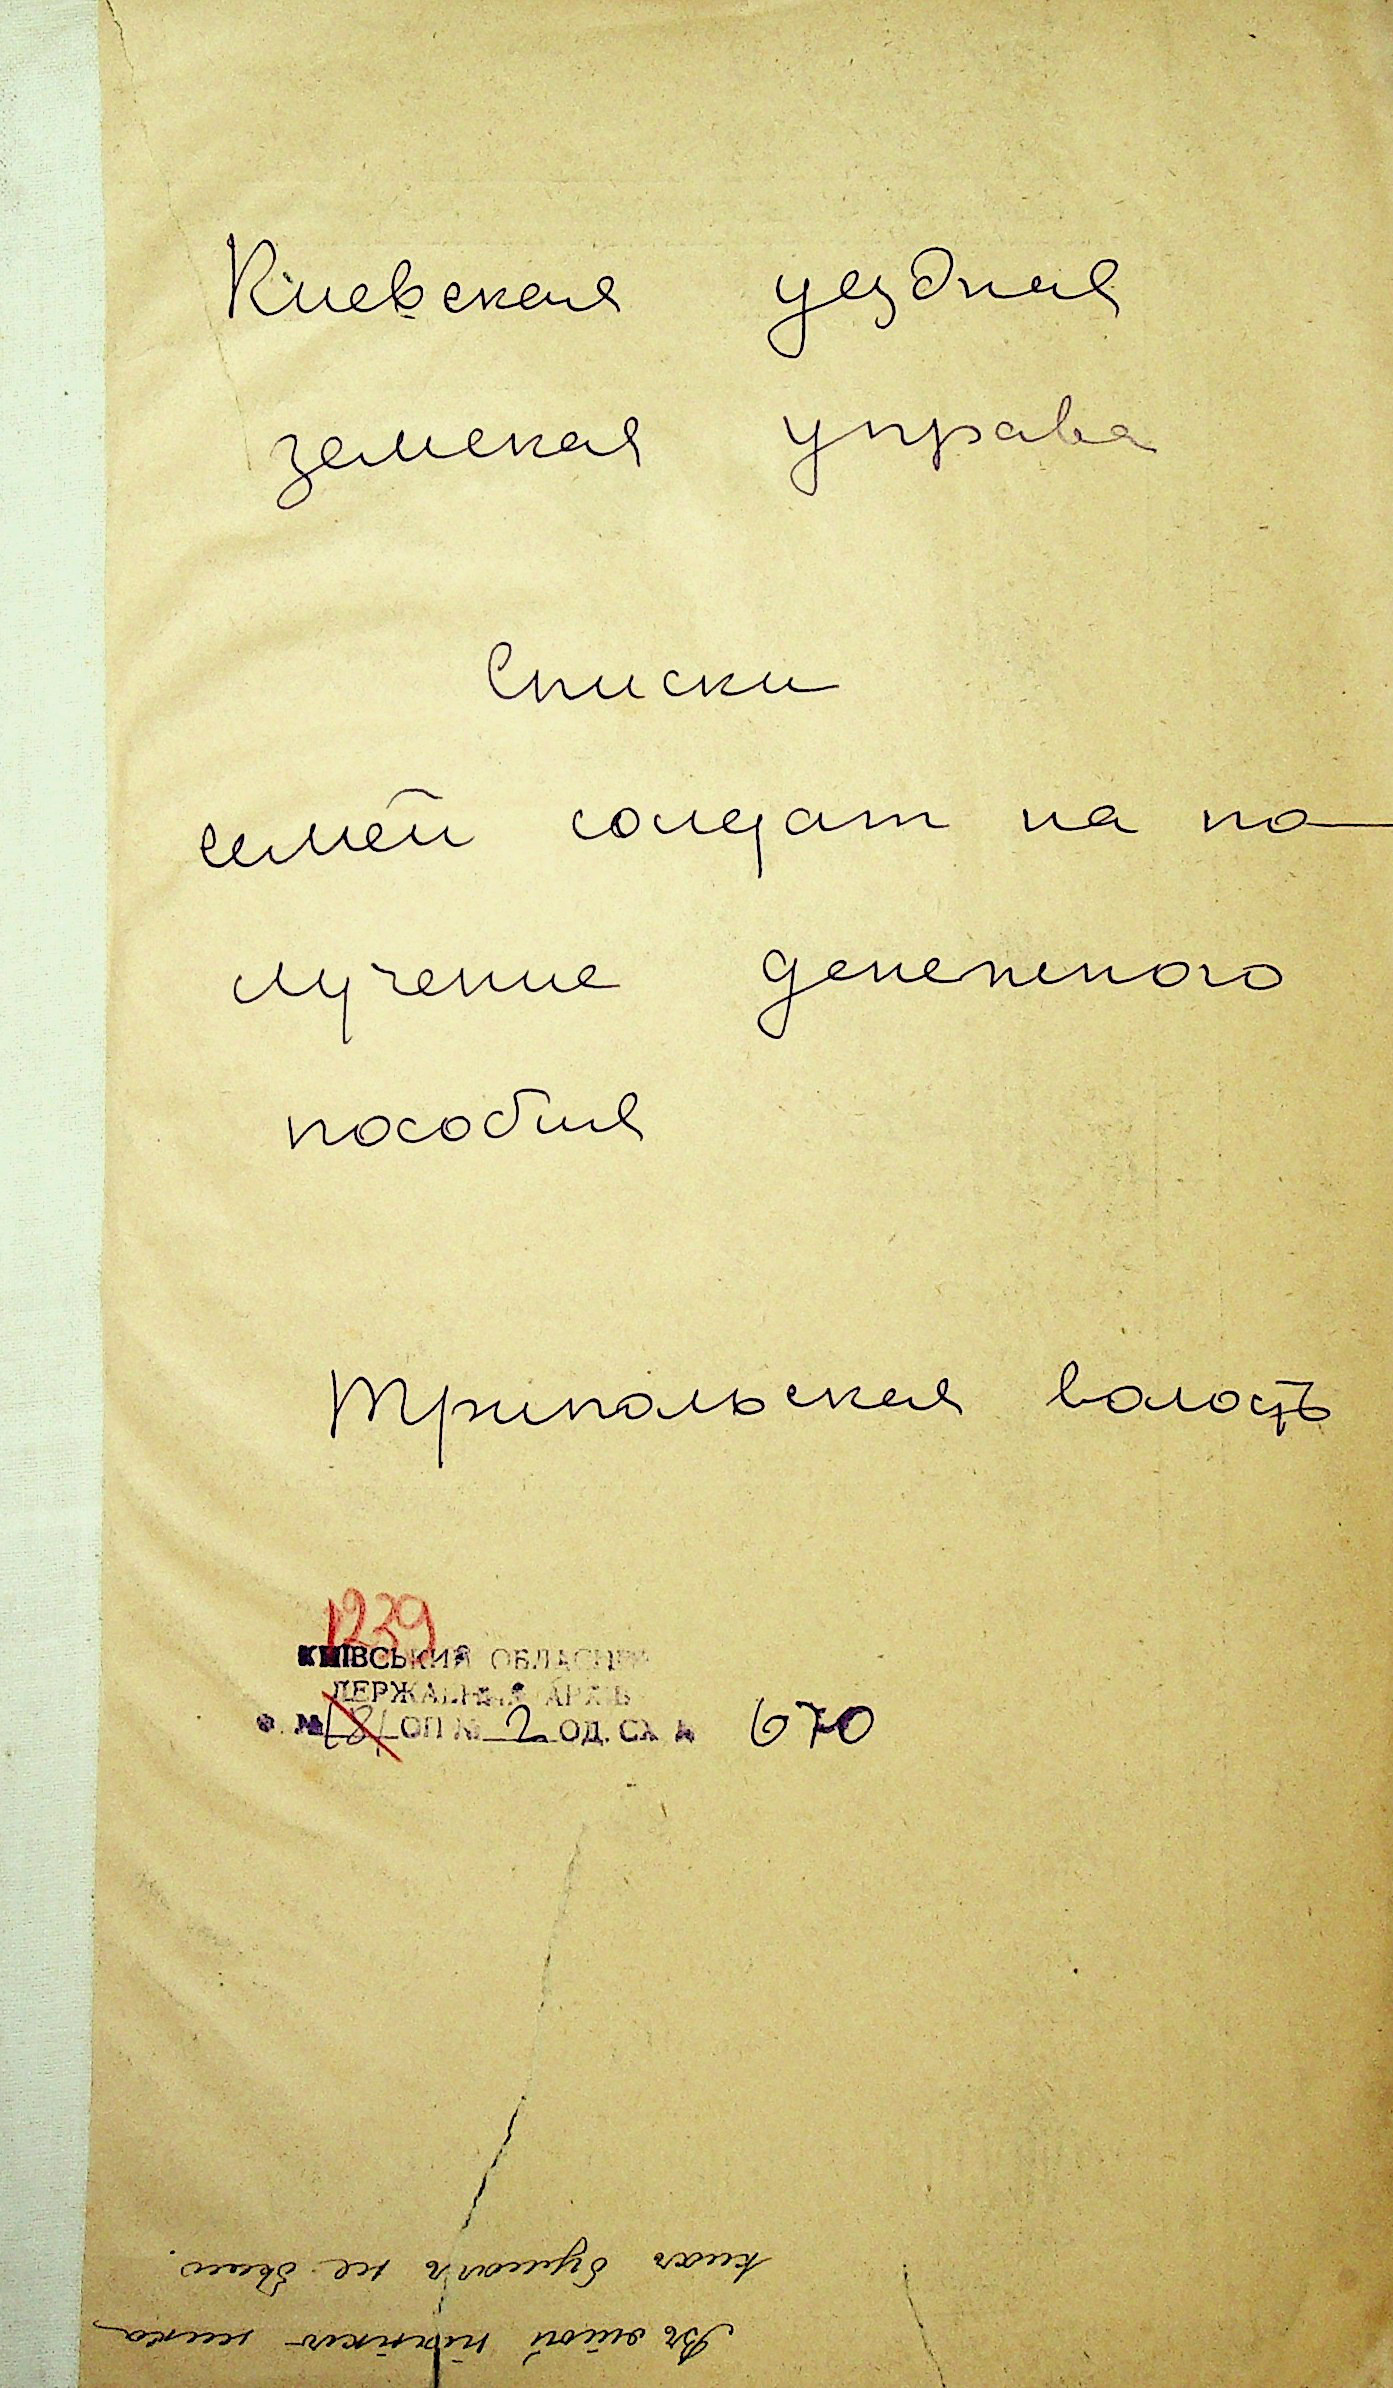 Киевская уездная
земская управа
Списки
семей солдат на по-
лучение денежного
пособия
Трипольская волость
1239
КИЇВСЬКИЙ ОБЛАСНИЙ
ДЕРЖАВНИЙ АРХІВ
Ф. № 181 ОП № 2 ОД. СХ № 670
Въ этой папке ника
кихъ бумагъ не было.